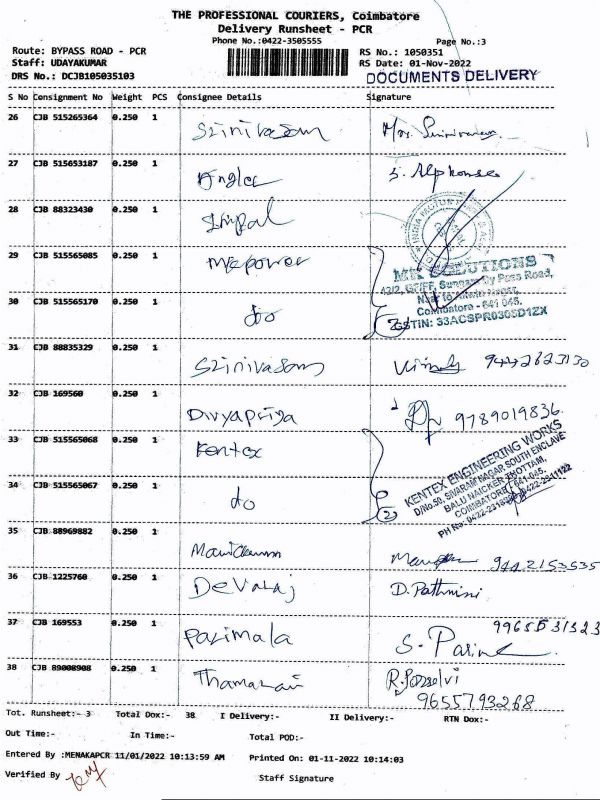 THE PROFESSIONAL COURIERS, Coimbatore
Delivery Runsheet - PCR
Phone No.:0422-3505555
Page No.:3
Route: BYPASS ROAD - PCR
RS No.: 1050351
Staff: UDAYAKUMAR
RS Date: 01-Nov-2022
DRS No.: DCJB105035103
DOCUMENTS DELIVERY
S No Consignment No Weight PCS Consignee Details Signature
26 CJB 515265364 0.250 1 Srinivasan
27 CJB 515653187 0.250 1 Angler S. Alphonse
28 CJB 88323430 0.250 1
29 CJB 515565085 0.250 1 Mrepower
MR SOLUTIONS
Coimbatore - 641 045.
GSTIN: 33ACSPR0305D1ZX
30 CJB 515565170 0.250 1 do
31 CJB 88835329 0.250 1 Srinivasan 9442623130
32 CJB 169560 0.250 1 Divyapriya 9789019836
33 CJB 515565068 0.250 1 Kentex
KENTEX ENGINEERING WORKS
D/No.50, SIVARAM NAGAR SOUTH ENCLAVE
BALU NAICKER THOTTAM,
COIMBATORE - 641-045.
34 CJB 515565067 0.250 1 do 2
35 CJB 88969882 0.250 1 9442153535
36 CJB 1225760 0.250 1 Devaraj D. Pathmini
37 CJB 169553 0.250 1 Parimala S.
38 CJB 89008908 0.250 1 Thamarai 9655793268
Tot. Runsheet:- 3 Total Dox:- 38 I Delivery:- II Delivery:- RTN Dox:-
Out Time:- In Time:- Total POD:-
Entered By :MENAKAPCR 11/01/2022 10:13:59 AM Printed On: 01-11-2022 10:14:03
Verified By
Staff Signature